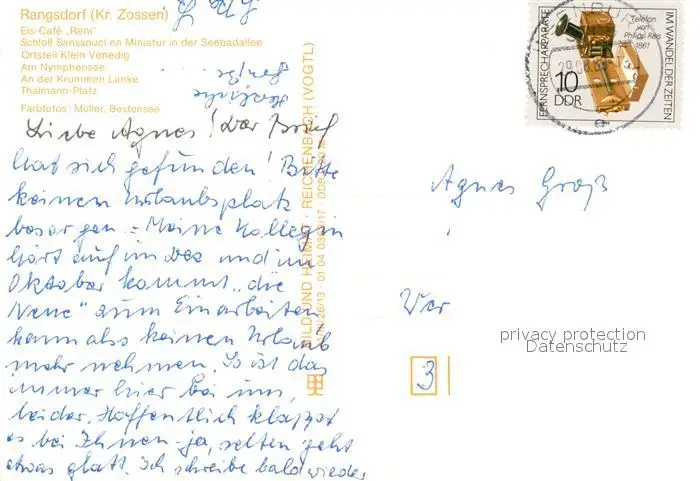 Rangsdorf (Kr. Zossen)
Eis-Café „Reni"
Schloß Sanssouci en Miniatur in der Seebadallee
Ortsteil Klein Venedig
Am Nymphensee
An der Krummen Lanke
Thälmann-Platz
Farbfotos: Müller, Bestensee
Herzliche Grüße
Liebe Agnes! Der Brief
hat sich gefunden! Bitte
keinen Urlaubsplatz
besorgen - Meine Kollegin
hört auf im Dez und im
Oktober kommt „die
Neue" zum Einarbeiten
kann also keinen Urlaub
mehr nehmen. So ist das
immer hier bei uns,
leider. Hoffentlich klappt
es bei Ihnen - ja, selten geht
etwas glatt. Ich schreibe bald wieder
BILD UND HEIMAT · REICHENBACH (VOGTL)
FERNSPRECHAPPARATE
IM WANDEL DER ZEITEN
Telefon
von
Philipp Reis
1861
10
DDR
Agnes Groß
Wer
privacy protection
Datenschutz
3